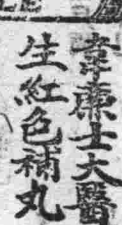 韋廉士大醫
生紅色補丸